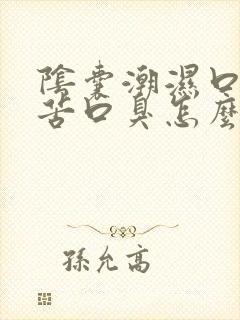 陰囊潮濕口
苦口臭怎麼
孫允高